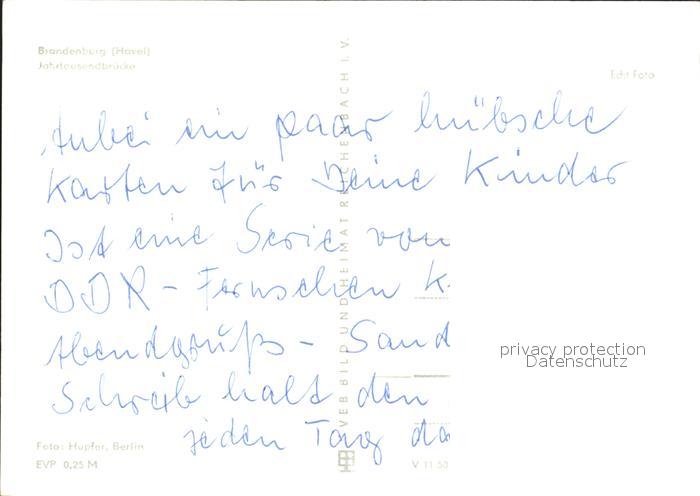 Brandenburg (Havel)
Jahrtausendbrücke
Echt Foto
Anbei ein paar hübsche
Karten für Deine Kinder
Ist eine Serie von
DDR - Fernsehen K
Abendgruß - Sand
Schreib halt den
jeden Tag da
VEB BILD UND HEIMAT REICHENBACH I. V.
privacy protection
Datenschutz
Foto: Hupfer, Berlin
EVP 0,25 M
V 11 50